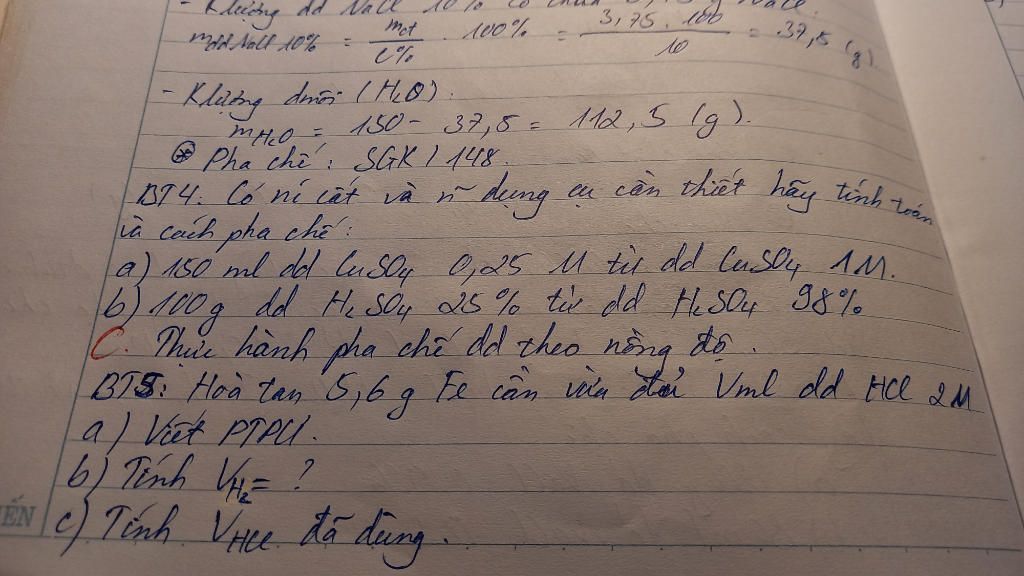 - K.lượng dd NaCl 10% có chứa 3,75 g NaCl:
mdd NaCl 10% = mct / C% . 100% = 3,75 . 100 / 10 = 37,5 (g).
- K.lượng dmôi (H2O):
mH2O = 150 - 37,5 = 112,5 (g).
⊛ Pha chế: SGK / 148.
BT4: Có nc cất và n~ dụng cụ cần thiết hãy tính toán
và cách pha chế:
a) 150 ml dd CuSO4 0,25 M từ dd CuSO4 1M.
b) 100g dd H2SO4 25% từ dd H2SO4 98%
C. Thực hành pha chế dd theo nồng độ.
BT5: Hoà tan 5,6 g Fe cần vừa đủ Vml dd HCl 2M
a) Viết PTPƯ.
b) Tính VH2 = ?
c) Tính VHCl đã dùng.
ẾN